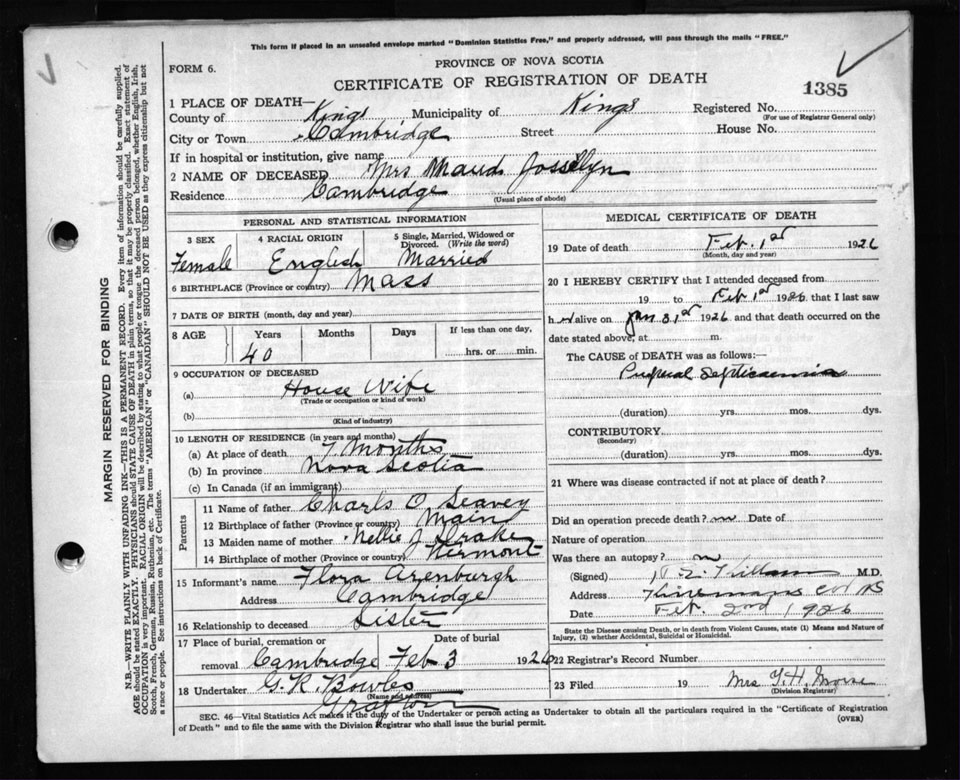 This form if placed in an unsealed envelope marked "Dominion Statistics Free," and properly addressed, will pass through the mails "FREE."
PROVINCE OF NOVA SCOTIA
FORM 6.
CERTIFICATE OF REGISTRATION OF DEATH
1385
1 PLACE OF DEATH—
County of Kings Municipality of Kings Registered No.
(For use of Registrar General only)
City or Town Cambridge Street House No.
If in hospital or institution, give name
2 NAME OF DECEASED Mrs Maud Josselyn
Residence Cambridge
(Usual place of abode)
PERSONAL AND STATISTICAL INFORMATION
3 SEX 4 RACIAL ORIGIN 5 Single, Married, Widowed or Divorced. (Write the word)
Female English Married
6 BIRTHPLACE (Province or country) Mass
7 DATE OF BIRTH (month, day and year)
8 AGE Years Months Days If less than one day,
40 hrs. or min.
9 OCCUPATION OF DECEASED
(a) House Wife
(Trade or occupation or kind of work)
(b)
(Kind of industry)
10 LENGTH OF RESIDENCE (in years and months)
(a) At place of death 7 Months
(b) In province Nova Scotia
(c) In Canada (if an immigrant)
Parents
11 Name of father Charls O Seavey
12 Birthplace of father (Province or country) Main
13 Maiden name of mother Nellie J Drake
14 Birthplace of mother (Province or country) Vermont
15 Informant's name Flora Arenburgh
Address Cambridge
16 Relationship to deceased Sister
17 Place of burial, cremation or Date of burial
removal Cambridge Feb 3 1926
18 Undertaker G. R. Bowles
(Name and address)
Grafton
MEDICAL CERTIFICATE OF DEATH
19 Date of death Feb. 1st 1926
(Month, day and year)
20 I HEREBY CERTIFY that I attended deceased from
19 to Feb 1st 1926 that I last saw
h er alive on Jan 31st 1926 and that death occurred on the
date stated above, at m.
The CAUSE of DEATH was as follows:
Septicaemia
(duration) yrs. mos. dys.
CONTRIBUTORY
(Secondary)
(duration) yrs. mos. dys.
21 Where was disease contracted if not at place of death?
Did an operation precede death? no Date of
Nature of operation
Was there an autopsy? no
(Signed) M.D.
Address N S
Date Feb. 2nd 1926
State the Disease causing Death, or in death from Violent Causes, state (1) Means and Nature of
Injury, (2) whether Accidental, Suicidal or Homicidal.
22 Registrar's Record Number
23 Filed 19 Mrs
(Division Registrar)
SEC. 46—Vital Statistics Act makes it the duty of the Undertaker or person acting as Undertaker to obtain all the particulars required in the "Certificate of Registration
of Death" and to file the same with the Division Registrar who shall issue the burial permit.
(OVER)
MARGIN RESERVED FOR BINDING
N.B.—WRITE PLAINLY WITH UNFADING INK—THIS IS A PERMANENT RECORD. Every item of information should be carefully supplied.
AGE should be stated EXACTLY. PHYSICIANS should STATE CAUSE OF DEATH in plain terms, so that it may be properly classified. Exact statement of
OCCUPATION is very important. RACIAL ORIGIN will be described by stating to what people or tongue the deceased person belonged, whether English, Irish,
Scotch, French, German, Russian, Ruthenian, etc. The terms "AMERICAN" or "CANADIAN" SHOULD NOT BE USED as they express citizenship but not
a race or people. See instructions on back of Certificate.